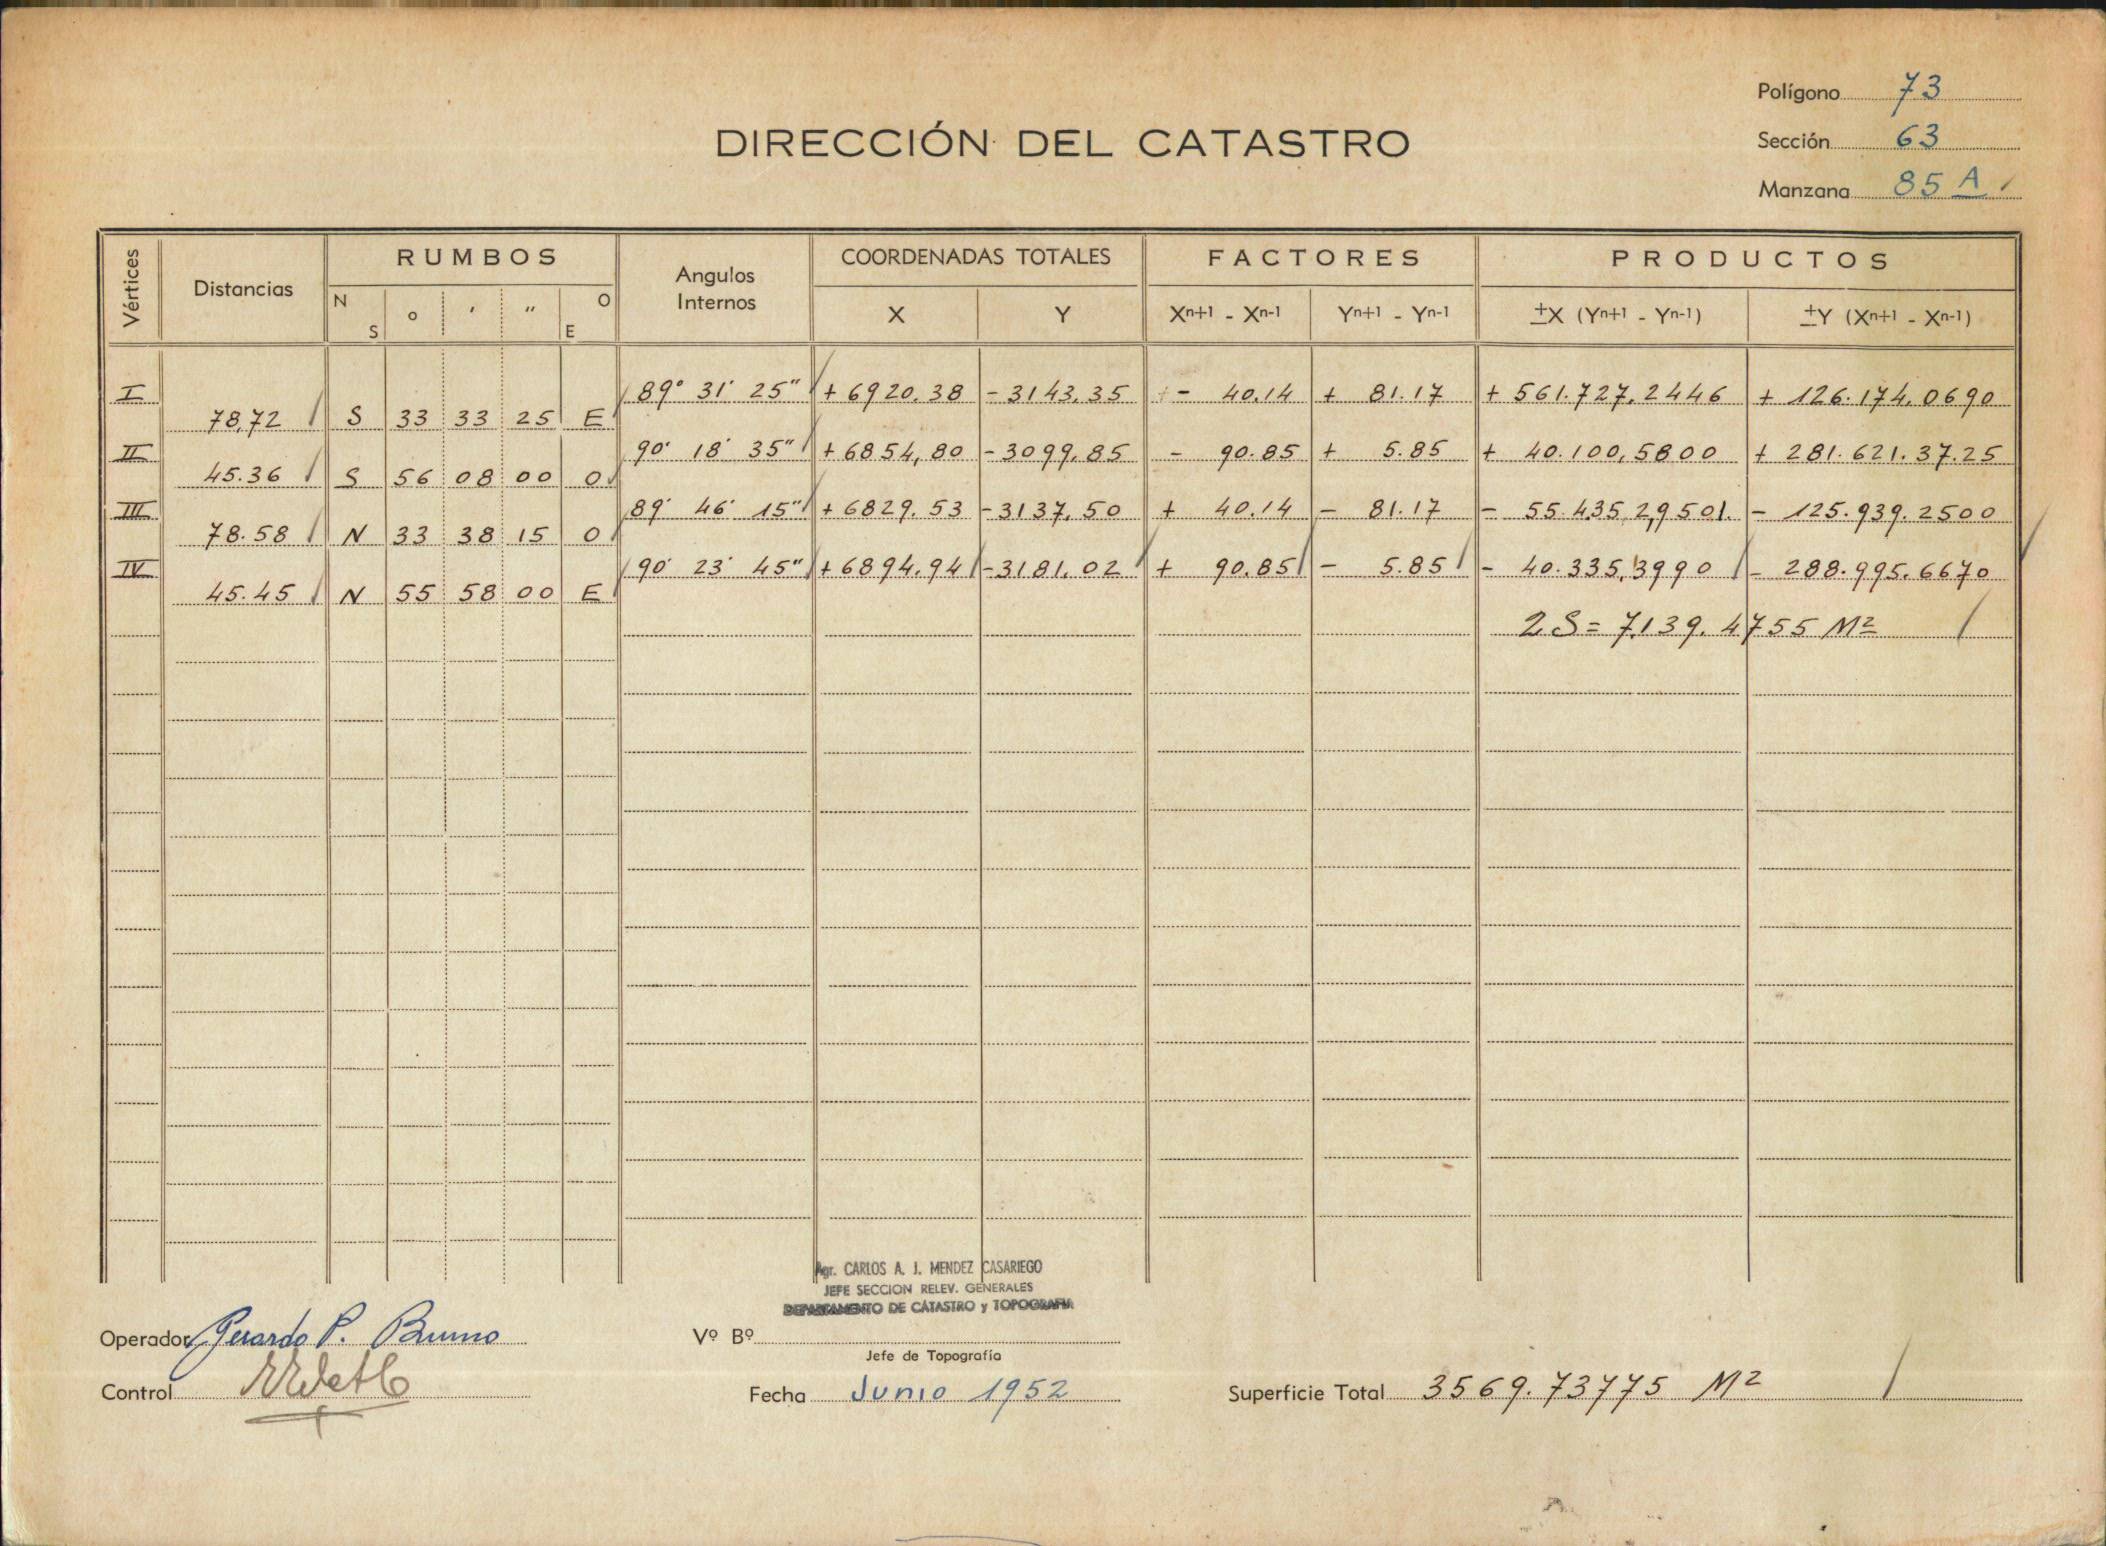 Polígono 73
DIRECCIÓN DEL CATASTRO
Sección 63
Manzana 85 A
Vértices Distancias RUMBOS Angulos Internos COORDENADAS TOTALES FACTORES PRODUCTOS
N S o ' " O E X Y Xⁿ⁺¹ - Xⁿ⁻¹ Yⁿ⁺¹ - Yⁿ⁻¹ ±X (Yⁿ⁺¹ - Yⁿ⁻¹) ±Y (Xⁿ⁺¹ - Xⁿ⁻¹)
I 89° 31' 25" + 6920.38 - 3143.35 - 40.14 + 81.17 + 561.727,2446 + 126.174,0690
78,72 S 33 33 25 E
II 90° 18' 35" + 6854,80 - 3099.85 - 90.85 + 5.85 + 40.100,5800 + 281.621.37.25
45.36 S 56 08 00 O
III 89° 46' 15" + 6829.53 - 3137,50 + 40.14 - 81.17 - 55.435,2,9501. - 125.939.2500
78.58 N 33 38 15 O
IV 90° 23' 45" + 6894.94 - 3181,02 + 90.85 - 5.85 - 40.335,3990 - 288.995.6670
45.45 N 55 58 00 E
2 S = 7.139.4755 M²
Agr. CARLOS A. J. MENDEZ CASARIEGO
JEFE SECCION RELEV. GENERALES
DEPARTAMENTO DE CATASTRO y TOPOGRAFIA
Operador Gerardo P. Bruno Vº Bº
Jefe de Topografía
Control Fecha Junio 1952 Superficie Total 3569.73775 M²